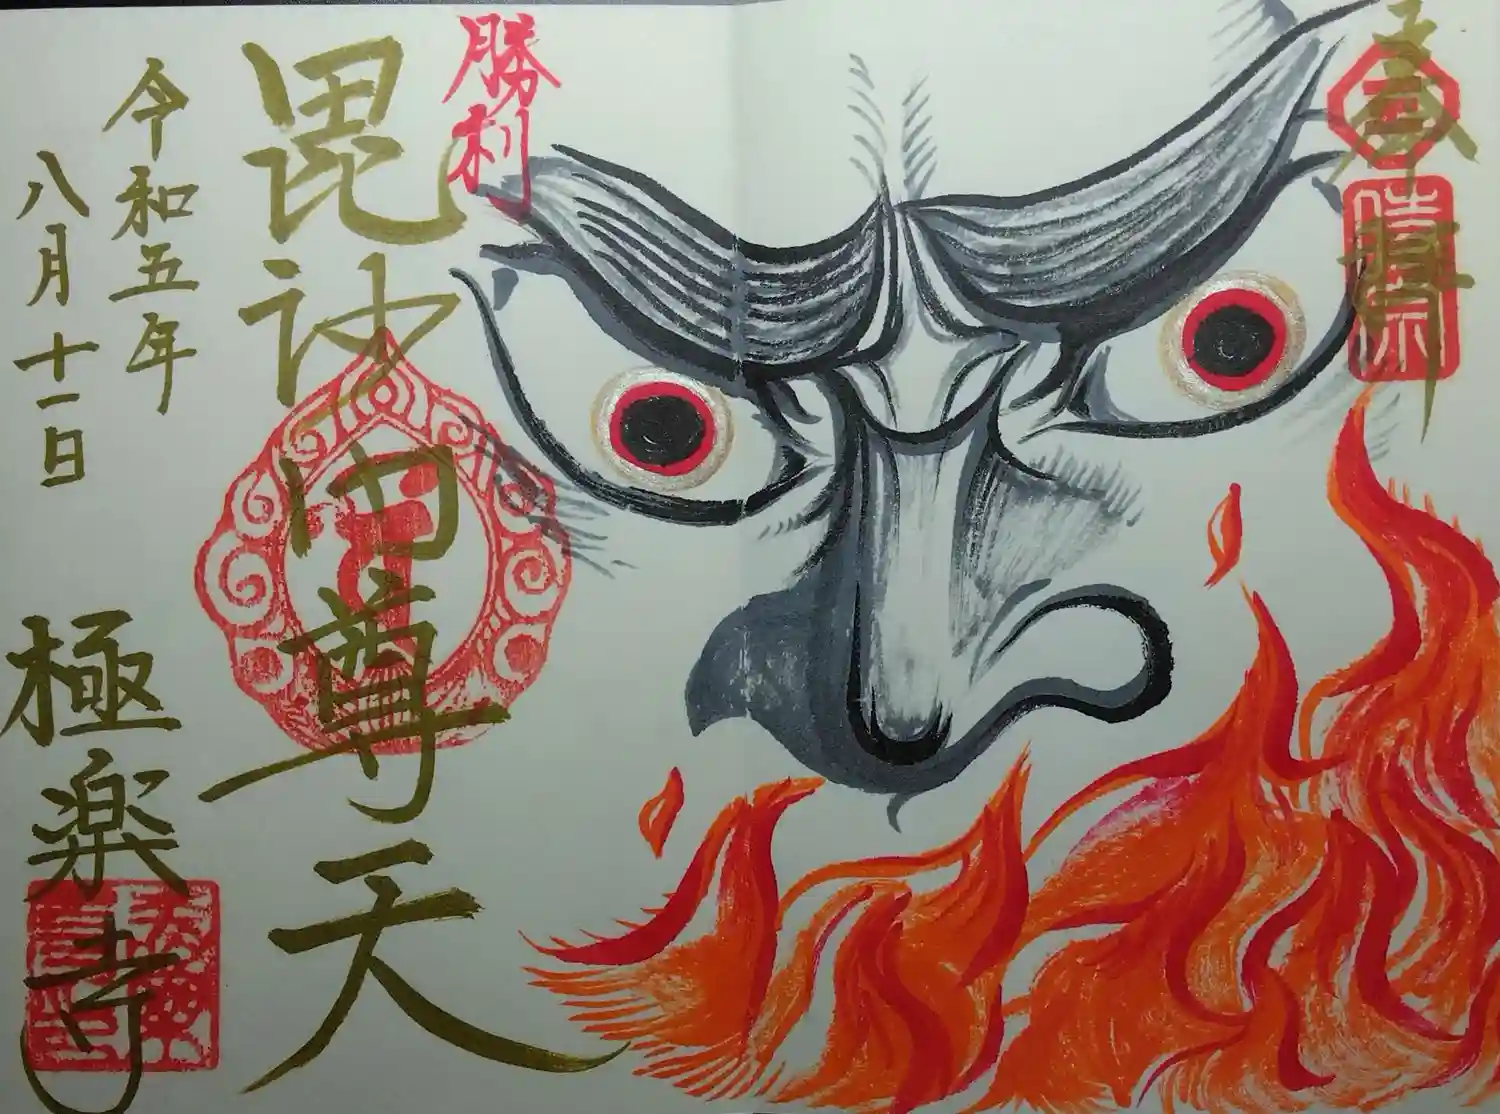 奉拝
勝利
毘沙門尊天
令和五年
八月十一日
極楽寺